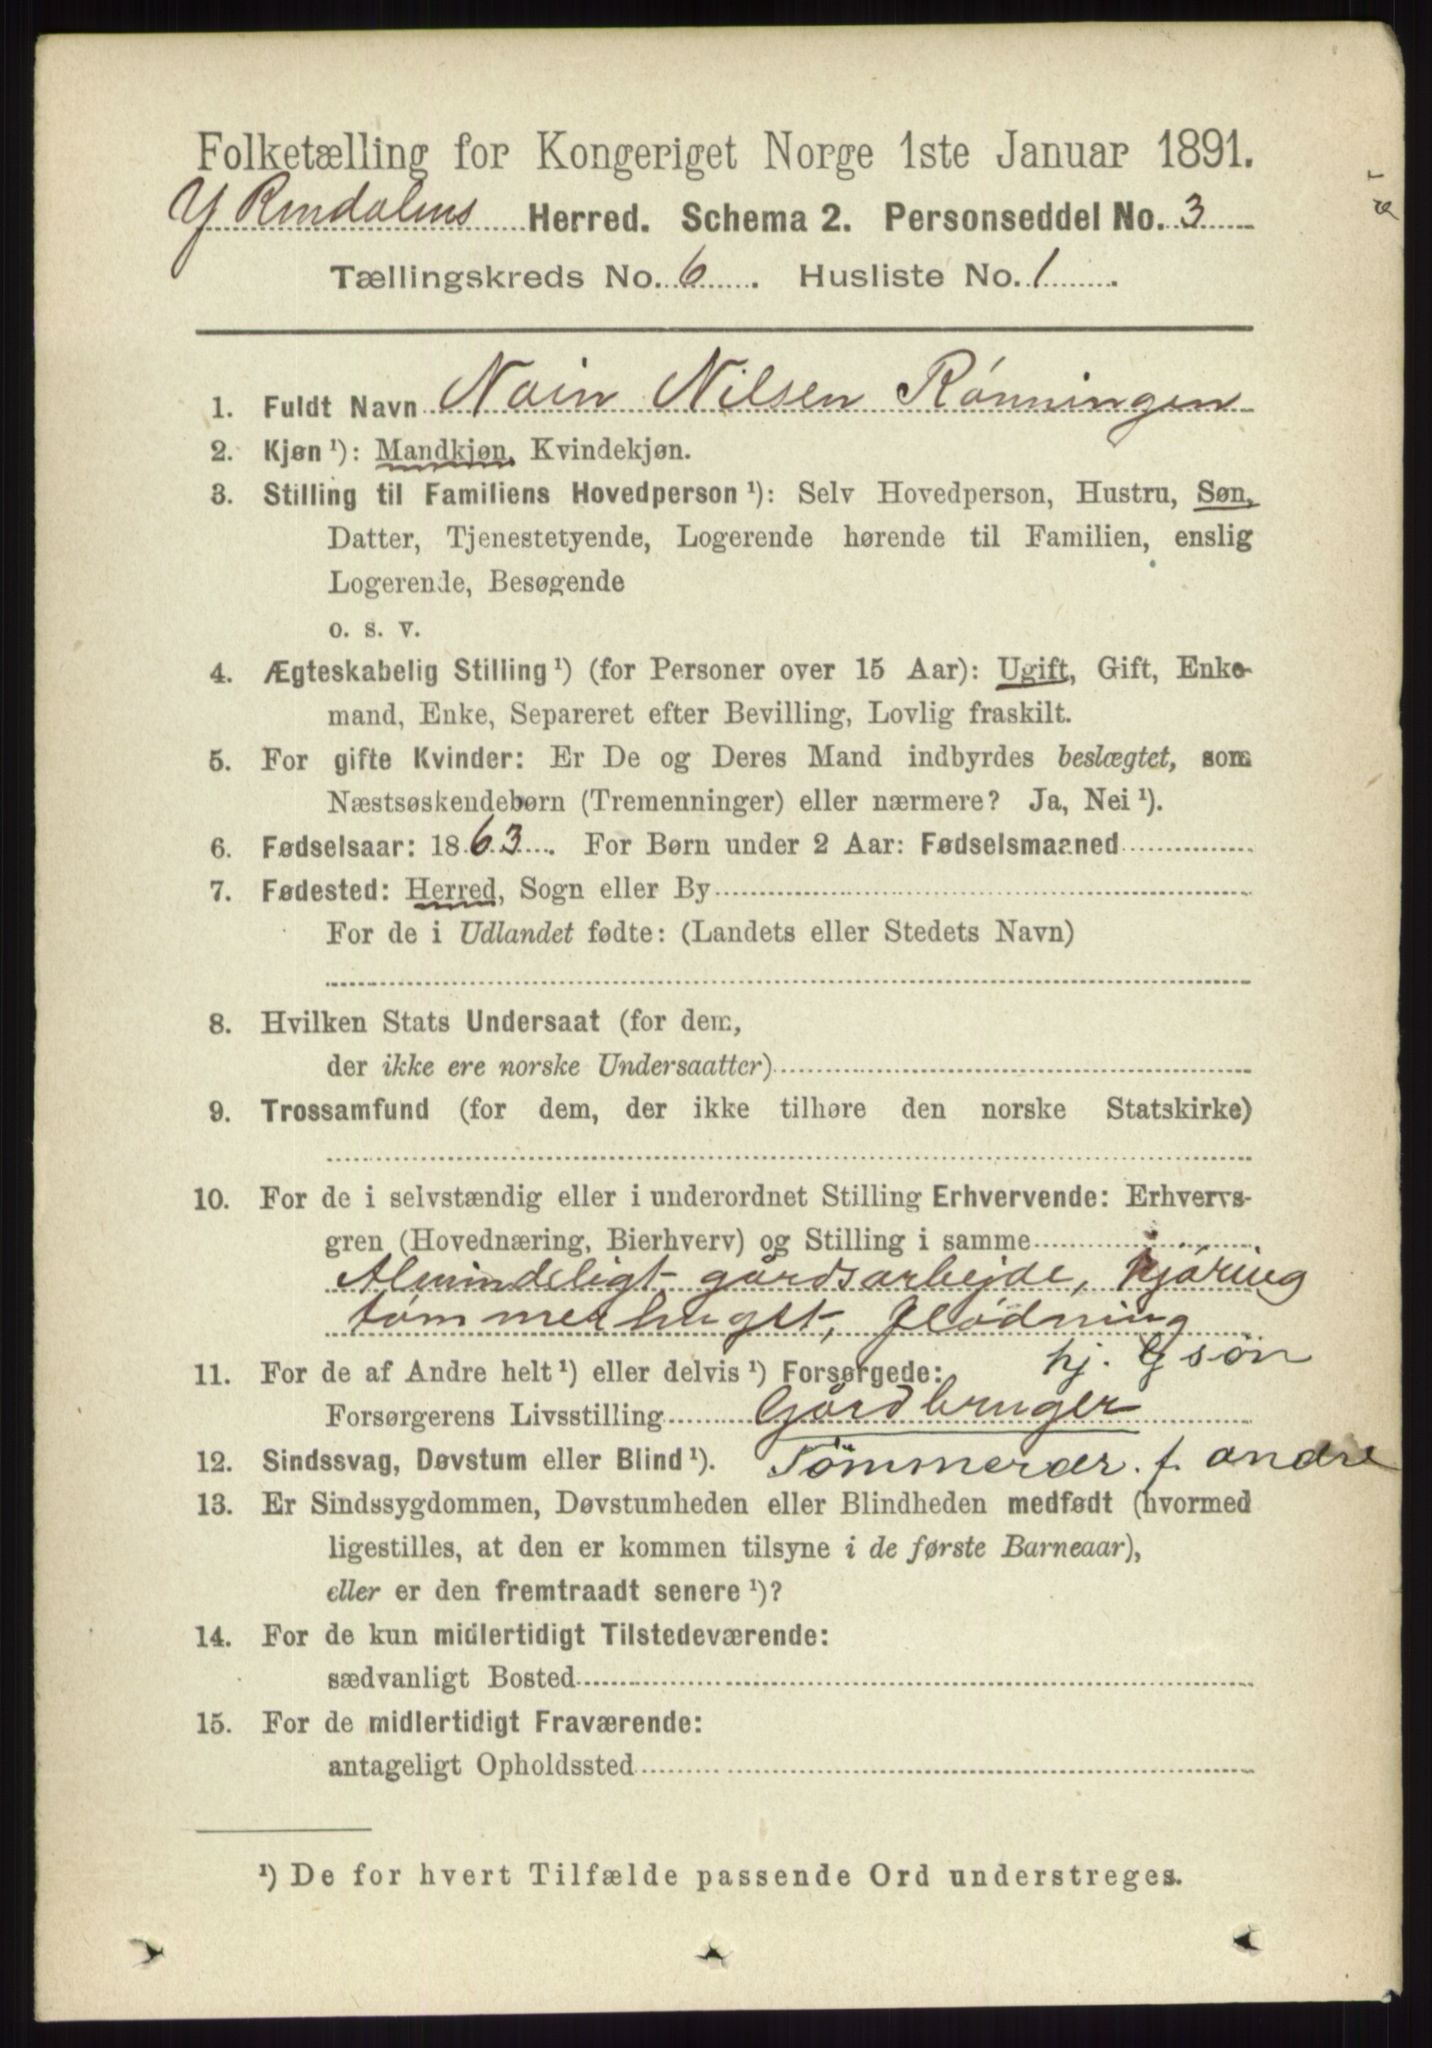 Folketælling for Kongeriget Norge 1ste Januar 1891.
Y Rendalens Herred. Schema 2. Personseddel No. 3
Tællingskreds No. 6. Husliste No. 1.
1. Fuldt Navn Nain Nilsen Rønningen
2. Kjøn ¹): Mandkjøn, Kvindekjøn.
3. Stilling til Familiens Hovedperson ¹): Selv Hovedperson, Hustru, Søn,
Datter, Tjenestetyende, Logerende hørende til Familien, enslig
Logerende, Besøgende
o. s. v.
4. Ægteskabelig Stilling ¹) (for Personer over 15 Aar): Ugift, Gift, Enke-
mand, Enke, Separeret efter Bevilling, Lovlig fraskilt.
5. For gifte Kvinder: Er De og Deres Mand indbyrdes beslægtet, som
Næstsøskendebørn (Tremenninger) eller nærmere? Ja, Nei ¹).
6. Fødselsaar: 1863. For Børn under 2 Aar: Fødselsmaaned
7. Fødested: Herred, Sogn eller By
For de i Udlandet fødte: (Landets eller Stedets Navn)
8. Hvilken Stats Undersaat (for dem,
der ikke ere norske Undersaatter)
9. Trossamfund (for dem, der ikke tilhøre den norske Statskirke)
10. For de i selvstændig eller i underordnet Stilling Erhvervende: Erhvervs-
gren (Hovednæring, Bierhverv) og Stilling i samme
Almindeligt gårdsarbejde, kjøring
tømmerhugst, flødning
hj. G søn
11. For de af Andre helt ¹) eller delvis ¹) Forsørgede:
Forsørgerens Livsstilling Gårdbruger
12. Sindssvag, Døvstum eller Blind ¹). Tømmerar. f. andre
13. Er Sindssygdommen, Døvstumheden eller Blindheden medfødt (hvormed
ligestilles, at den er kommen tilsyne i de første Barneaar),
eller er den fremtraadt senere ¹)?
14. For de kun midlertidigt Tilstedeværende:
sædvanligt Bosted
15. For de midlertidigt Fraværende:
antageligt Opholdssted
¹) De for hvert Tilfælde passende Ord understreges.